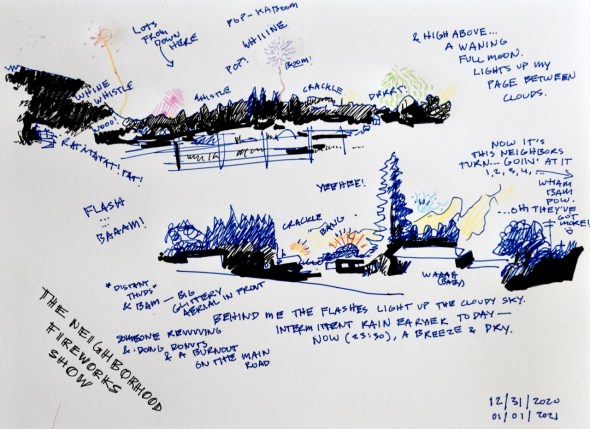 LOTS
FROM
DOWN
HERE
POP - KABOOM
WHIIINE
POP!
BOOM!
& HIGH ABOVE...
A WANING
FULL MOON.
LIGHTS UP MY
PAGE BETWEEN
CLOUDS.
WHINE
WHISTLE
WOOO!
WHISTLE
CRACKLE
DARRT!
RAT-A-TAT-AT! TAT!
NOW IT'S
THIS NEIGHBORS
TURN... GOIN' AT IT
1, 2, 3, 4, ...
WHAM
BAM
POW.
...OH THEY'VE
GOT
MORE!
YEEHEE!
FLASH
...
BAAAM!
CRACKLE
BANG
WAAAH
(BABY)
"DISTANT
THUDS"
& BAM — BIG
GLITTERY
AERIAL IN FRONT
BEHIND ME THE FLASHES LIGHT UP THE CLOUDY SKY.
INTERMITTENT RAIN EARLIER TODAY —
NOW (23:30), A BREEZE & DRY.
SOMEONE REVVVING
& DOING DONUTS
& A BURNOUT
ON THE MAIN
ROAD
THE NEIGHBORHOOD
FIREWORKS
SHOW
12/31/2020
01/01/2021